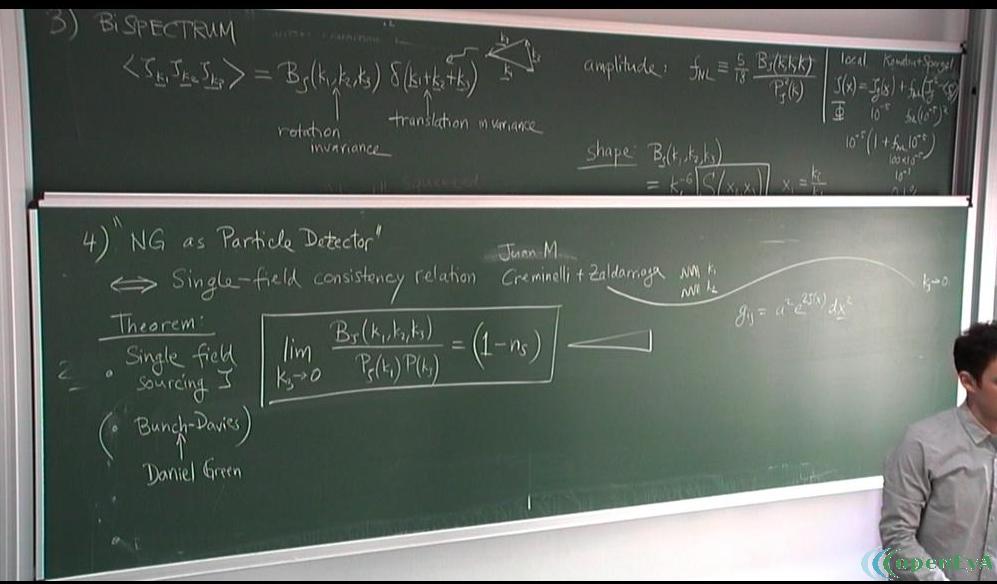 3) BiSPECTRUM
⟨ζ_k1 ζ_k2 ζ_k3⟩ = B_ζ(k₁,k₂,k₃) δ(k₁+k₂+k₃)
k₁ k₂ k₃
rotation invariance
translation invariance
amplitude: f_NL ≡ 5/18 B_ζ(k,k,k)/P_ζ²(k)
local Komatsu+Spergel
ζ(x) = ζ_g(x) + f_NL(ζ_g²
Φ 10⁻⁵ f_NL(10⁻⁵)²
10⁻⁵(1 + f_NL 10⁻⁵)
100×10⁻⁵
shape: B_ζ(k₁,k₂,k₃)
= k₁⁻⁶ S(x₁,x₂)
4) "NG as Particle Detector"
⟺ Single-field consistency relation
Juan M
Creminelli + Zaldarriaga
k₁
k₂
k₃→0
g_ij = a² e^{2ζ(x)} dx²
Theorem:
2
• Single field
sourcing ζ
lim k₃→0 B_ζ(k₁,k₂,k₃)/P_ζ(k₁)P(k₃) = (1-n_s)
(• Bunch-Davies)
↑
Daniel Green
openEyA